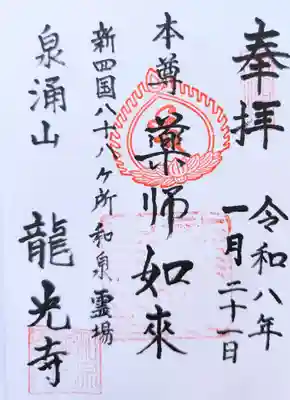 奉拝
令和八年
一月二十一日
本尊
薬師如來
新四国八十八ヶ所和泉霊場
泉涌山
龍光寺